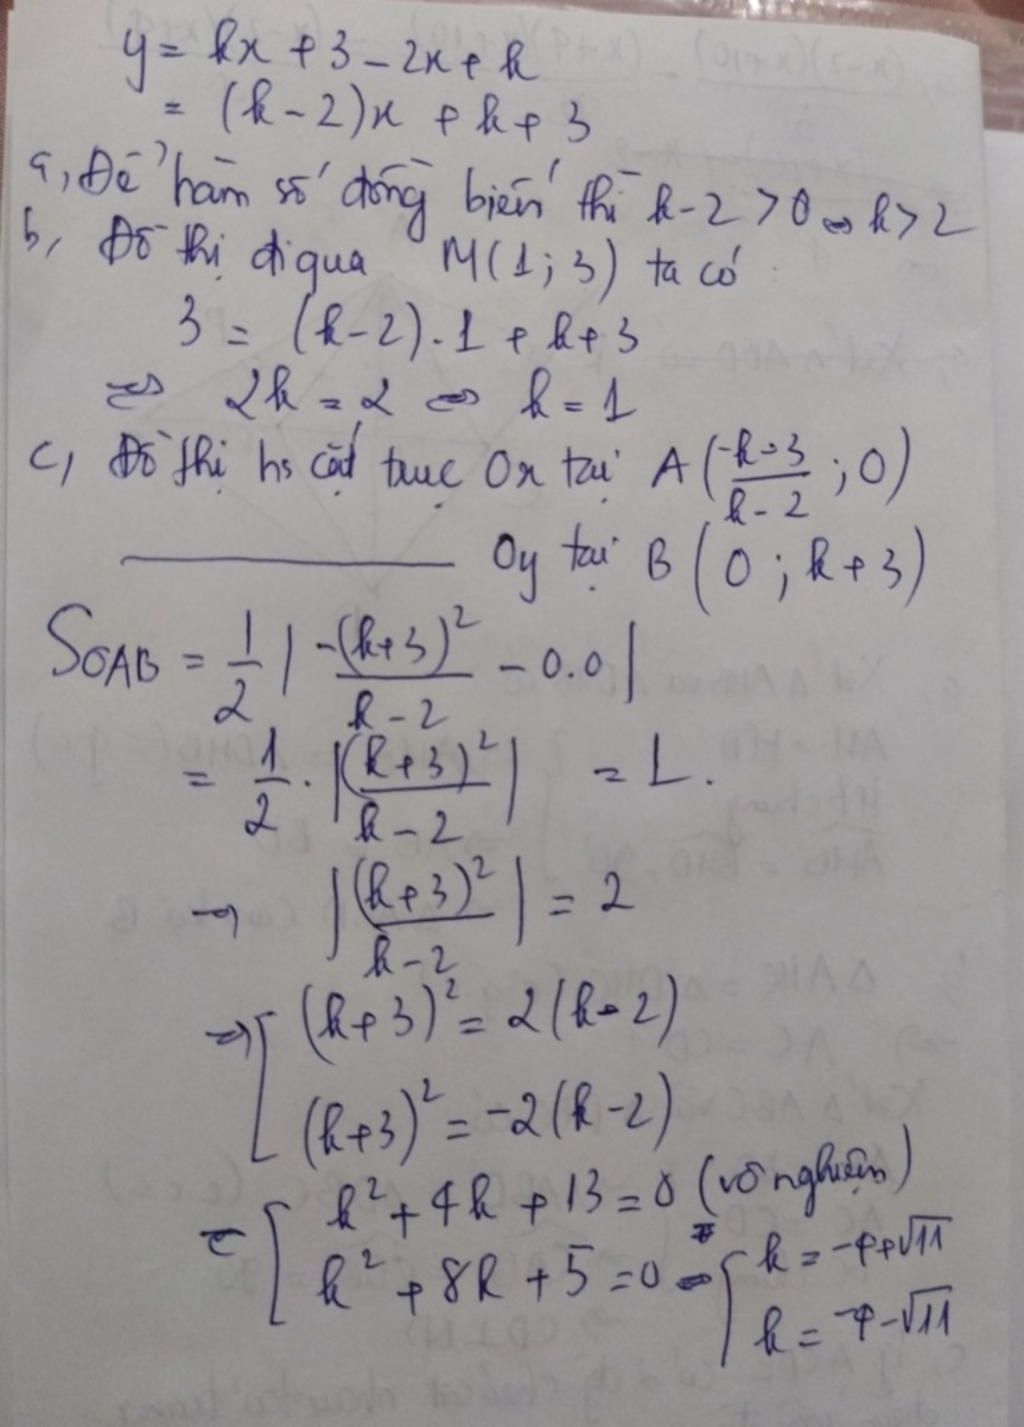 y = kx + 3 - 2x + k
= (k-2)x + k + 3
a, Để hàm số đồng biến thì k-2 > 0 ⇔ k > 2
b, Đồ thị đi qua M(1; 3) ta có
3 = (k-2).1 + k+3
⇔ 2k = 2 ⇔ k = 1
c, Đồ thị hs cắt trục Ox tại A(\frac{-k-3}{k-2}; 0)
———— Oy tại B(0; k+3)
S_{OAB} = \frac{1}{2} | \frac{-(k+3)^2}{k-2} - 0.0 |
= \frac{1}{2} . | \frac{(k+3)^2}{k-2} | = 1.
→ | \frac{(k+3)^2}{k-2} | = 2
⇒ [ (k+3)^2 = 2(k-2)
(k+3)^2 = -2(k-2)
= [ k^2 + 4k + 13 = 0 (vô nghiệm)
k^2 + 8k + 5 = 0 ⇔ [ k = -4+√11
k = -4-√11